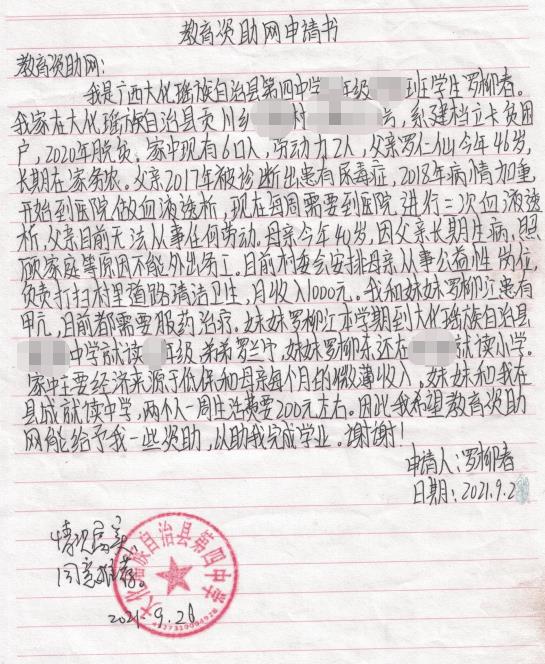 教育资助网申请书
教育资助网：
我是广西大化瑶族自治县第四中学 年级 班学生罗柳春。
我家在大化瑶族自治县贡川乡 村 ，系建档立卡贫困
户，2020年脱贫。家中现有6口人，劳动力2人，父亲罗仁仙今年46岁，
长期在家务农。父亲2017年被诊断出患有尿毒症，2018年病情加重
开始到医院做血液透析，现在每周需要到医院进行三次血液透
析，父亲目前无法从事任何劳动。母亲今年40岁，因父亲长期生病、照
顾家庭等原因不能外出务工。目前村委会安排母亲从事公益性岗位，
负责打扫村里道路清洁卫生，月收入1000元。我和妹妹罗柳江患有
甲亢，目前都需要服药治疗。妹妹罗柳江本学期到大化瑶族自治县
中学就读 年级，弟弟罗 ，妹妹罗柳 还在 就读小学。
家中主要经济来源于低保和母亲每个月的微薄收入。妹妹和我在
县城就读中学，两个人一周生活费要200元左右。因此我希望教育资助
网能给予我一些资助，以助我完成学业。谢谢！
申请人：罗柳春
日期：2021.9.2
情况属实，
同意推荐。
大化瑶族自治县第四中学
2021.9.28